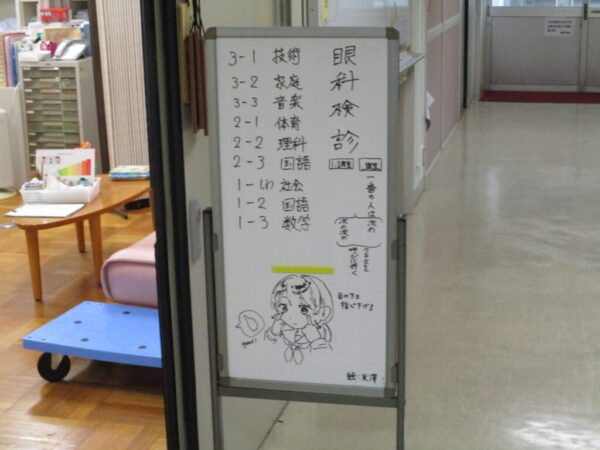 眼科検診
3-1 技術
3-2 家庭
3-3 音楽
2-1 体育
2-2 理科
2-3 国語
1-い 社会
1-2 国語
1-3 数学
一番の人は次の
次の次の
クラスを
呼びに行く
目の下を
指で下げる
good!
絵:米澤